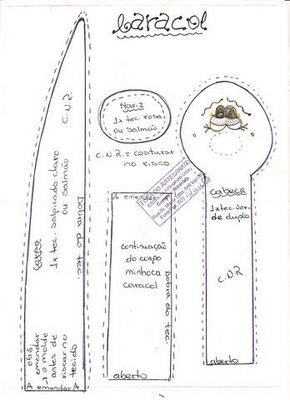 Caracol
Corpo
1x tec. salpicado claro
ou salmão
C.N.R
dobra do tec.
obs:
emendar
o molde
antes de
riscar no
tecido
A emendar A
Nariz
1x tec. rosa
ou salmão
C.N.R. = costurar
no risco
A emendar A
continuação
do corpo
minhoca
caracol
dobra do tec.
aberto
cabeça
1x tec. ver.
de duplo
C.N.R
aberto